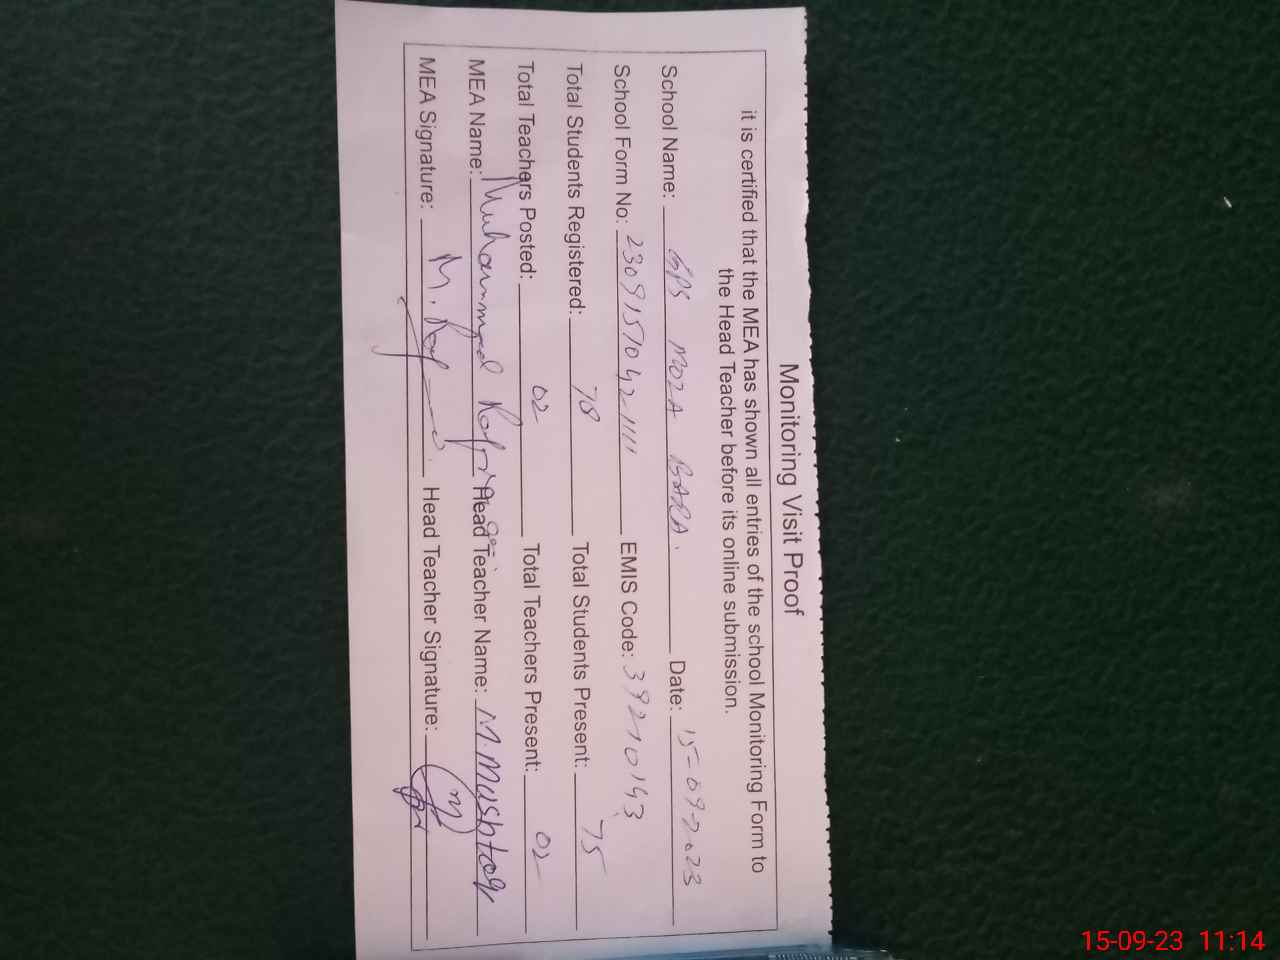 Monitoring Visit Proof
it is certified that the MEA has shown all entries of the school Monitoring Form to
the Head Teacher before its online submission.
School Name: GPS MOZA BARA. Date: 15-09-2023
School Form No: 23091570421111 EMIS Code: 39210143
Total Students Registered: 78 Total Students Present: 75
Total Teachers Posted: 02 Total Teachers Present: 02
MEA Name: Muhammad Head Teacher Name: M. Mushtaq
MEA Signature: M. Head Teacher Signature:
15-09-23 11:14